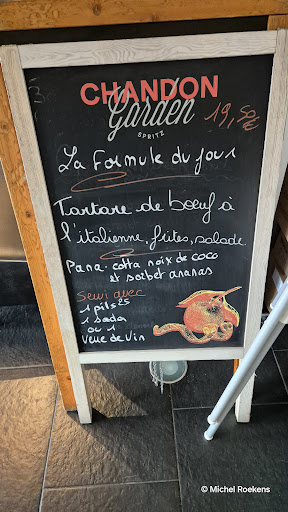 CHANDON
Garden
SPRITZ
19,50€
La Formule du jour
Tartare de bœuf à
l'italienne, frites, salade
Pana-cotta noix de coco
et sorbet ananas
Servi avec
1 pils 25
1 soda
ou 1
Verre de Vin
© Michel Roekens